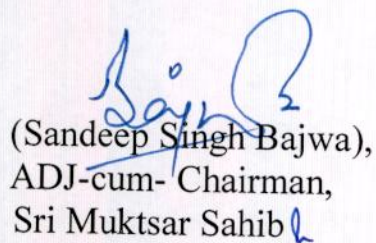 (Sandeep Singh Bajwa),
ADJ-cum- Chairman,
Sri Muktsar Sahib